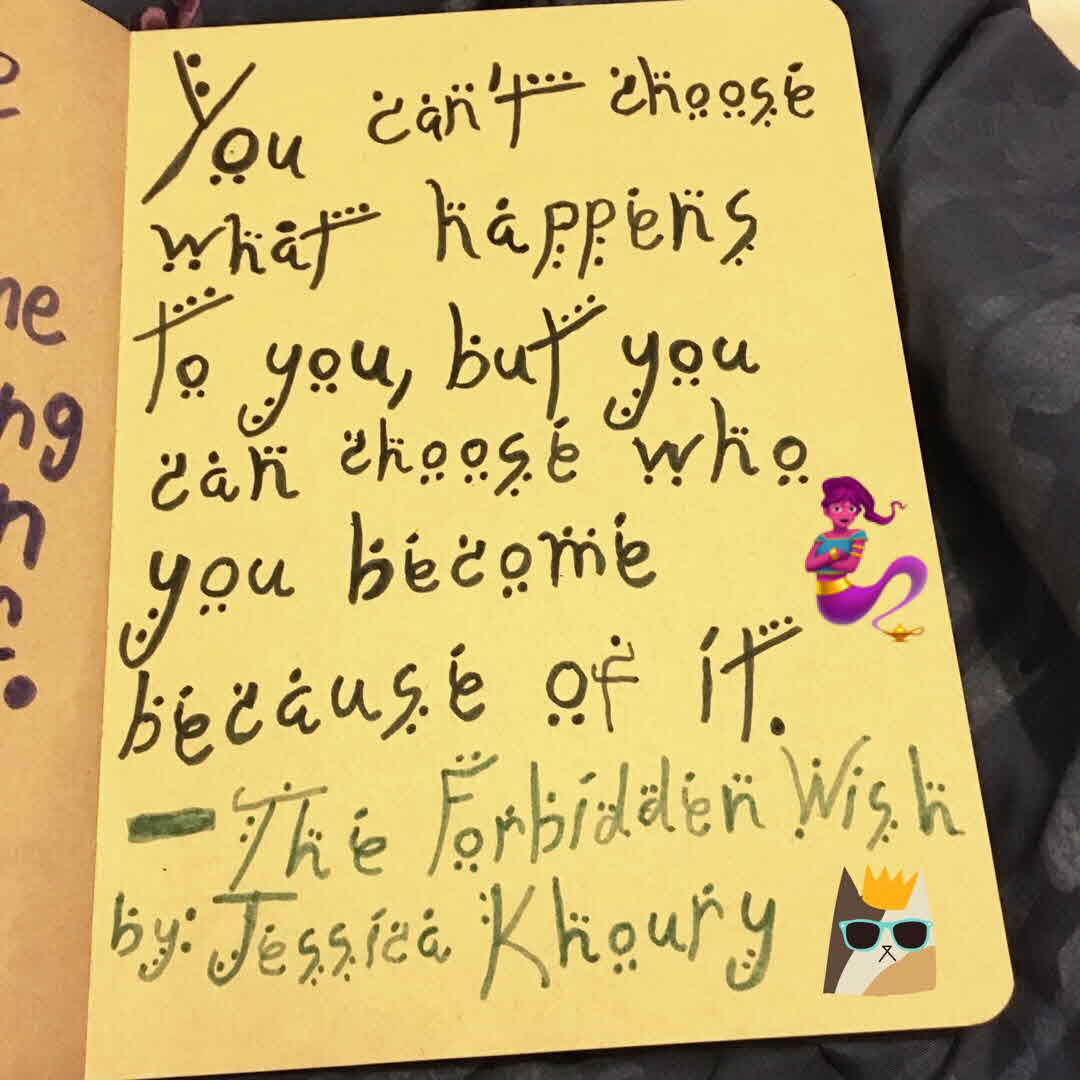 You can't choose
what happens
to you, but you
can choose who
you become
because of it.
— The Forbidden Wish
by: Jessica Khoury